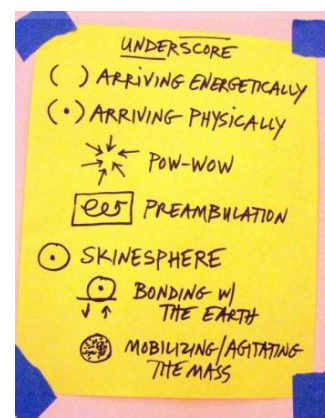 UNDERSCORE
( ) ARRIVING ENERGETICALLY
(•) ARRIVING PHYSICALLY
POW-WOW
PREAMBULATION
SKINESPHERE
BONDING W/
THE EARTH
MOBILIZING/AGITATING
THE MASS